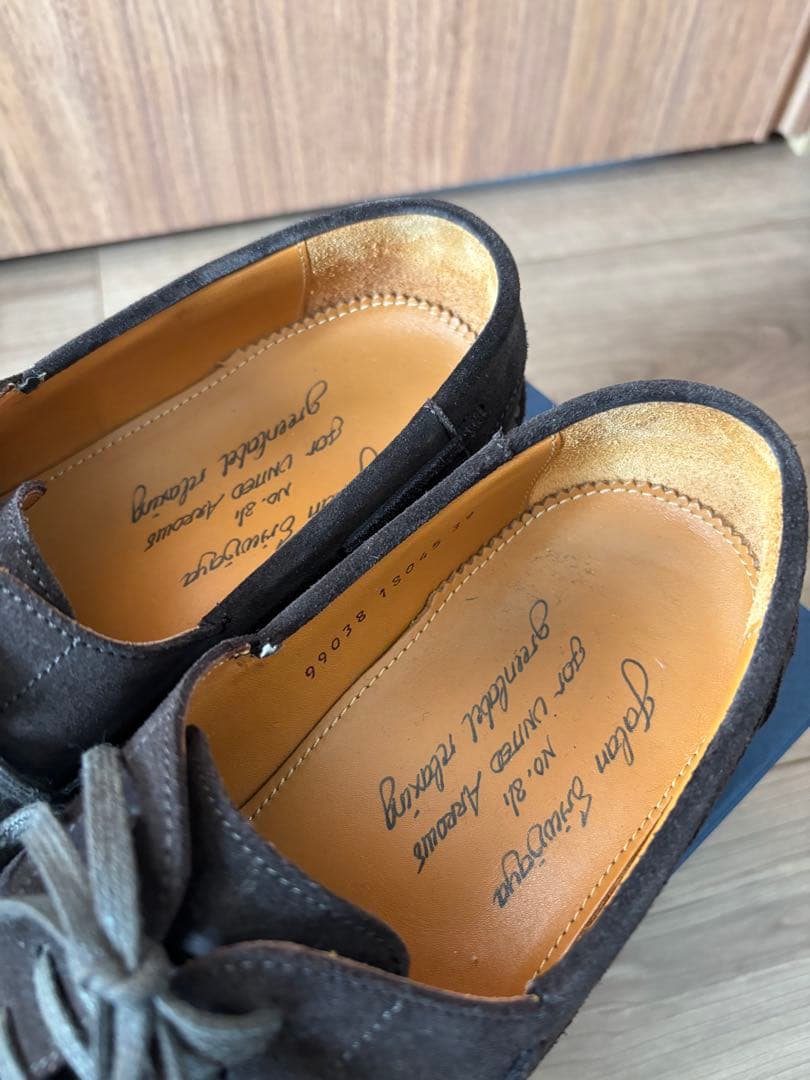 Jalan Sriwijaya
No. 81
for UNITED ARROWS
greenlabel relaxing
99038 18045
Jalan Sriwijaya
for UNITED ARROWS
greenlabel relaxing